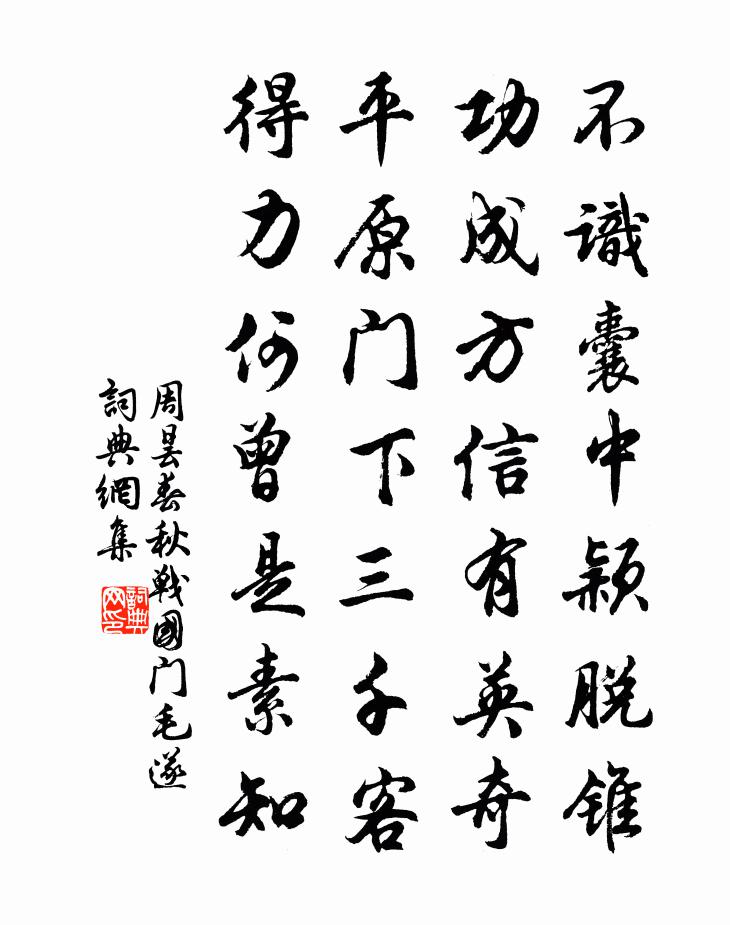 不識囊中穎脫錐
功成方信有英奇
平原門下三千客
得力何曾是素知
周昙春秋戰國門毛遂
詞典網集
詞典网印